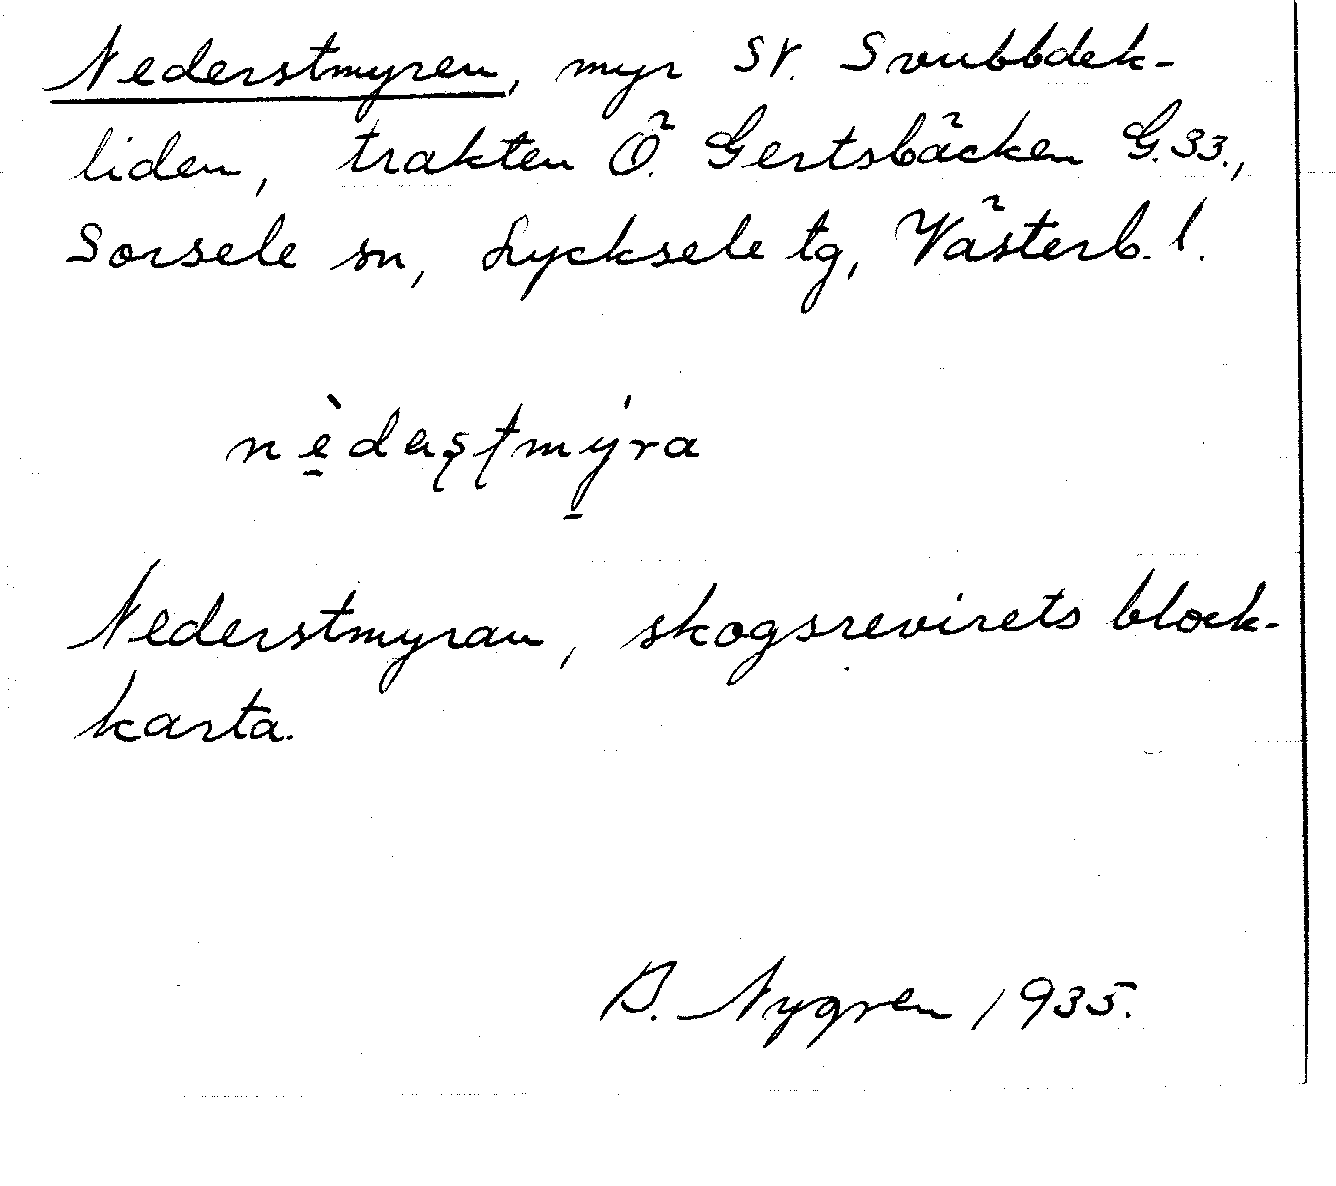 Nederstmyren, myr SV. Svubbdek-
liden, trakten Ö. Gertsbäcken G.33.,
Sorsele sn, Lycksele tg, Västerb. l.
nè̠daʂʈmý̠ra
Nederstmyran, skogsrevirets block-
karta.
B. Nygren 1935.